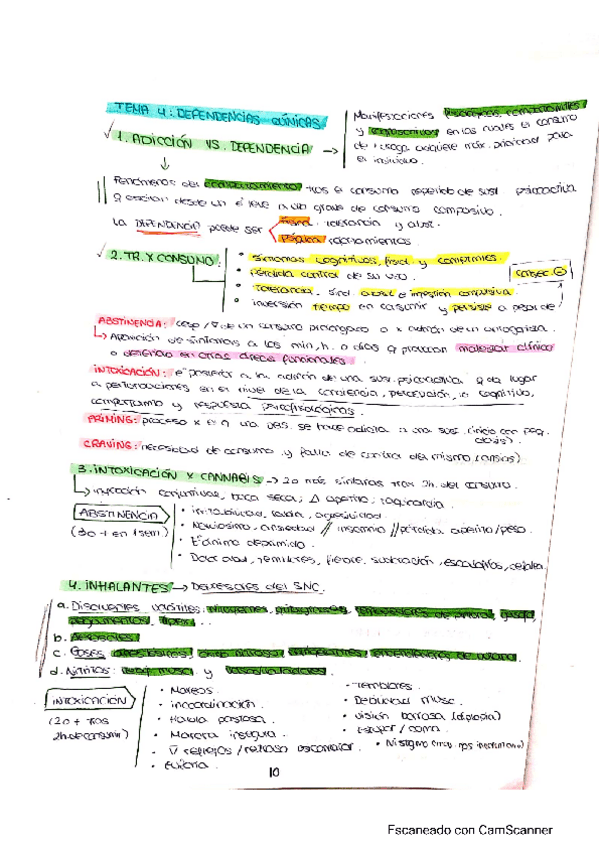 TEMA 4: DEPENDENCIAS CLÍNICAS
1. ADICCIÓN VS. DEPENDENCIA →
Manifestaciones fisiológicas, comportamentales
y cognoscitivas en las cuales el consumo
de 1 droga adquiere máx. prioridad para
el individuo.
Fenómenos del comportamiento tras el consumo repetido de sust psicoactiva
La DEPENDENCIA puede ser física: tolerancia y abst.
psíquica: pensamientos
2. TR. X CONSUMO
• Síntomas cognitivos, físicos y comptmles.
• pérdida control de su uso.
• Tolerancia, sínd. abst e ingestión compulsiva
• inversión tiempo en consumir y persiste a pesar de
consec ⊖
ABSTINENCIA: de un consumo prolongado o x admón de un antagonista.
↳ Aparición de síntomas a los min, h. o días q provocan malestar clínico
o deterioro en otras áreas funcionales.
INTOXICACIÓN: e° posterior a la admón de una sus. psicoactiva q da lugar
a perturbaciones en el nivel de la conciencia, percepción, cognitivo,
comportamto y respuesta psicofisiológicas.
PRIMING: proceso x el q una vez se hace adicta a una sust. (inicio con peq.
dosis).
CRAVING: necesidad de consumo y falta de control del mismo (ansias)
3. INTOXICACIÓN X CANNABIS → 2 o más síntomas tras 2h. del consumo.
↳ inyección conjuntivas, boca seca, Δ apetito, taquicardia.
ABSTINENCIA
(3 o + en 1 sem)
• irritabilidad, agresividad
• Nerviosismo, ansiedad // insomnio // pérdida apetito/peso.
• E. ánimo deprimido.
• Dolor abd, temblores, fiebre, sudoración, escalofríos, cefalea
4. INHALANTES → Depresores del SNC.
a. Disolventes volátiles: pegamentos,
b. Aerosoles
c. Gases: anestésicos,
d. Nitritos: relaj. musc. y vasodilatadores.
INTOXICACIÓN
(2 o + tras
2h de consumir)
• Mareos
• incoordinación.
• Habla pastosa
• Marcha insegura
• ∇ reflejos / retraso psicomotor.
• Euforia.
- Temblores.
• Debilidad Musc.
• visión borrosa (diplopia)
• Estupor / coma.
• Nistagmo
10
Escaneado con CamScanner